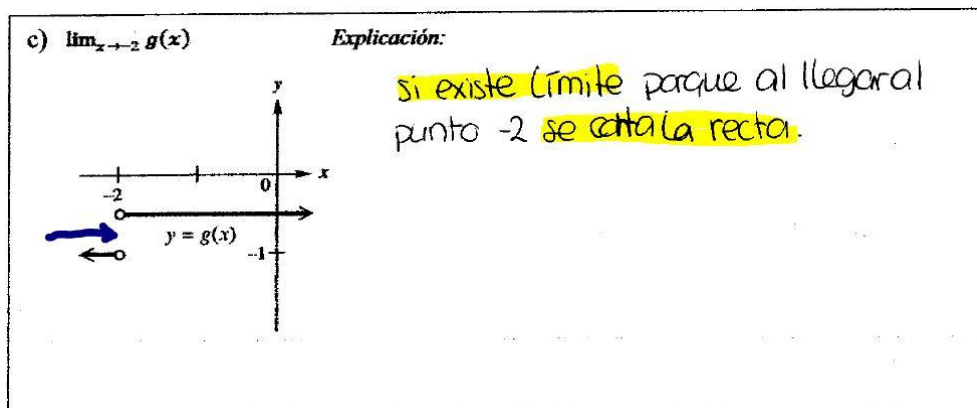 c) lim_{x→-2} g(x) Explicación:
si existe límite porque al llegar al
punto -2 se corta la recta.
y
0 x
-2
y = g(x)
-1